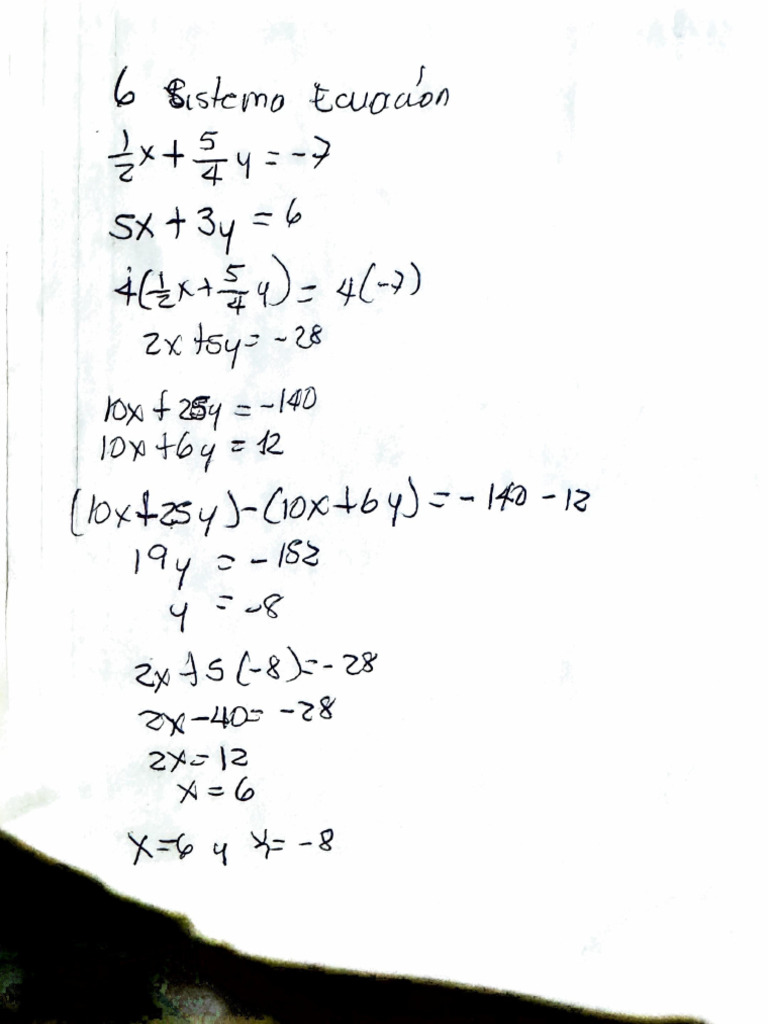 6 Sistemo Ecuación
1/2x + 5/4 y = -7
5x + 3y = 6
4(1/2x + 5/4 y) = 4(-7)
2x + 5y = -28
10x + 25y = -140
10x + 6y = 12
(10x + 25y) - (10x + 6y) = -140 - 12
19y = -152
y = -8
2x + 5(-8) = -28
2x - 40 = -28
2x = 12
x = 6
x = 6 y y = -8